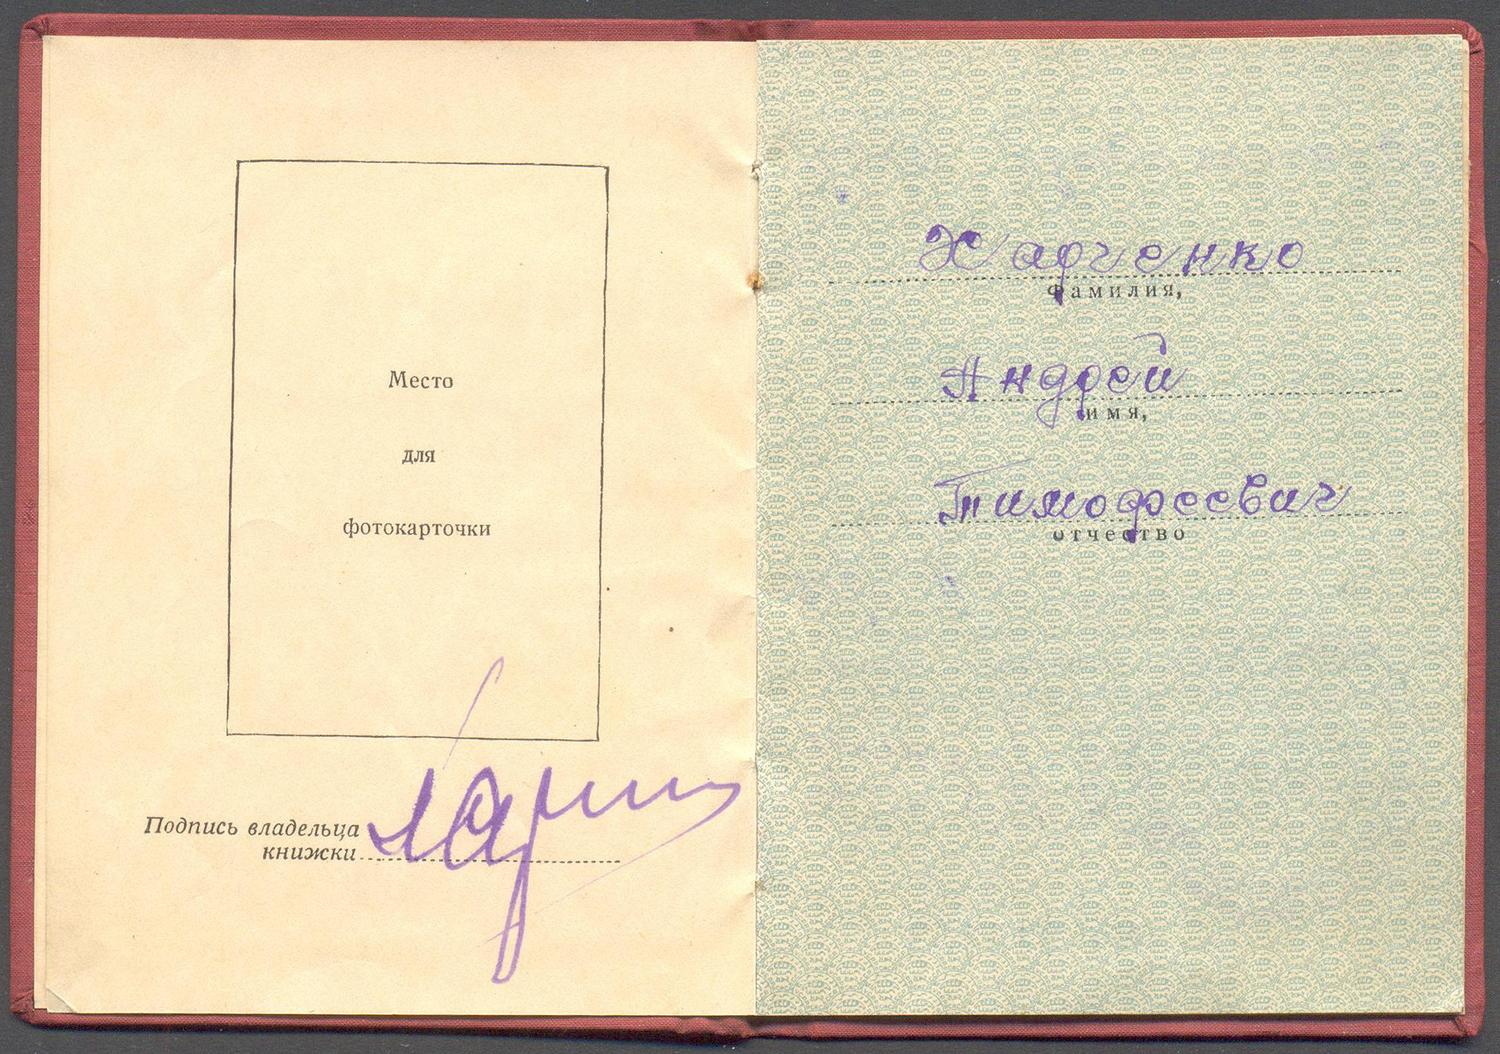 Место
для
фотокарточки
Подпись владельца
книжки
Харченко
Фамилия,
Андрей
имя,
Тимофеевич
отчество